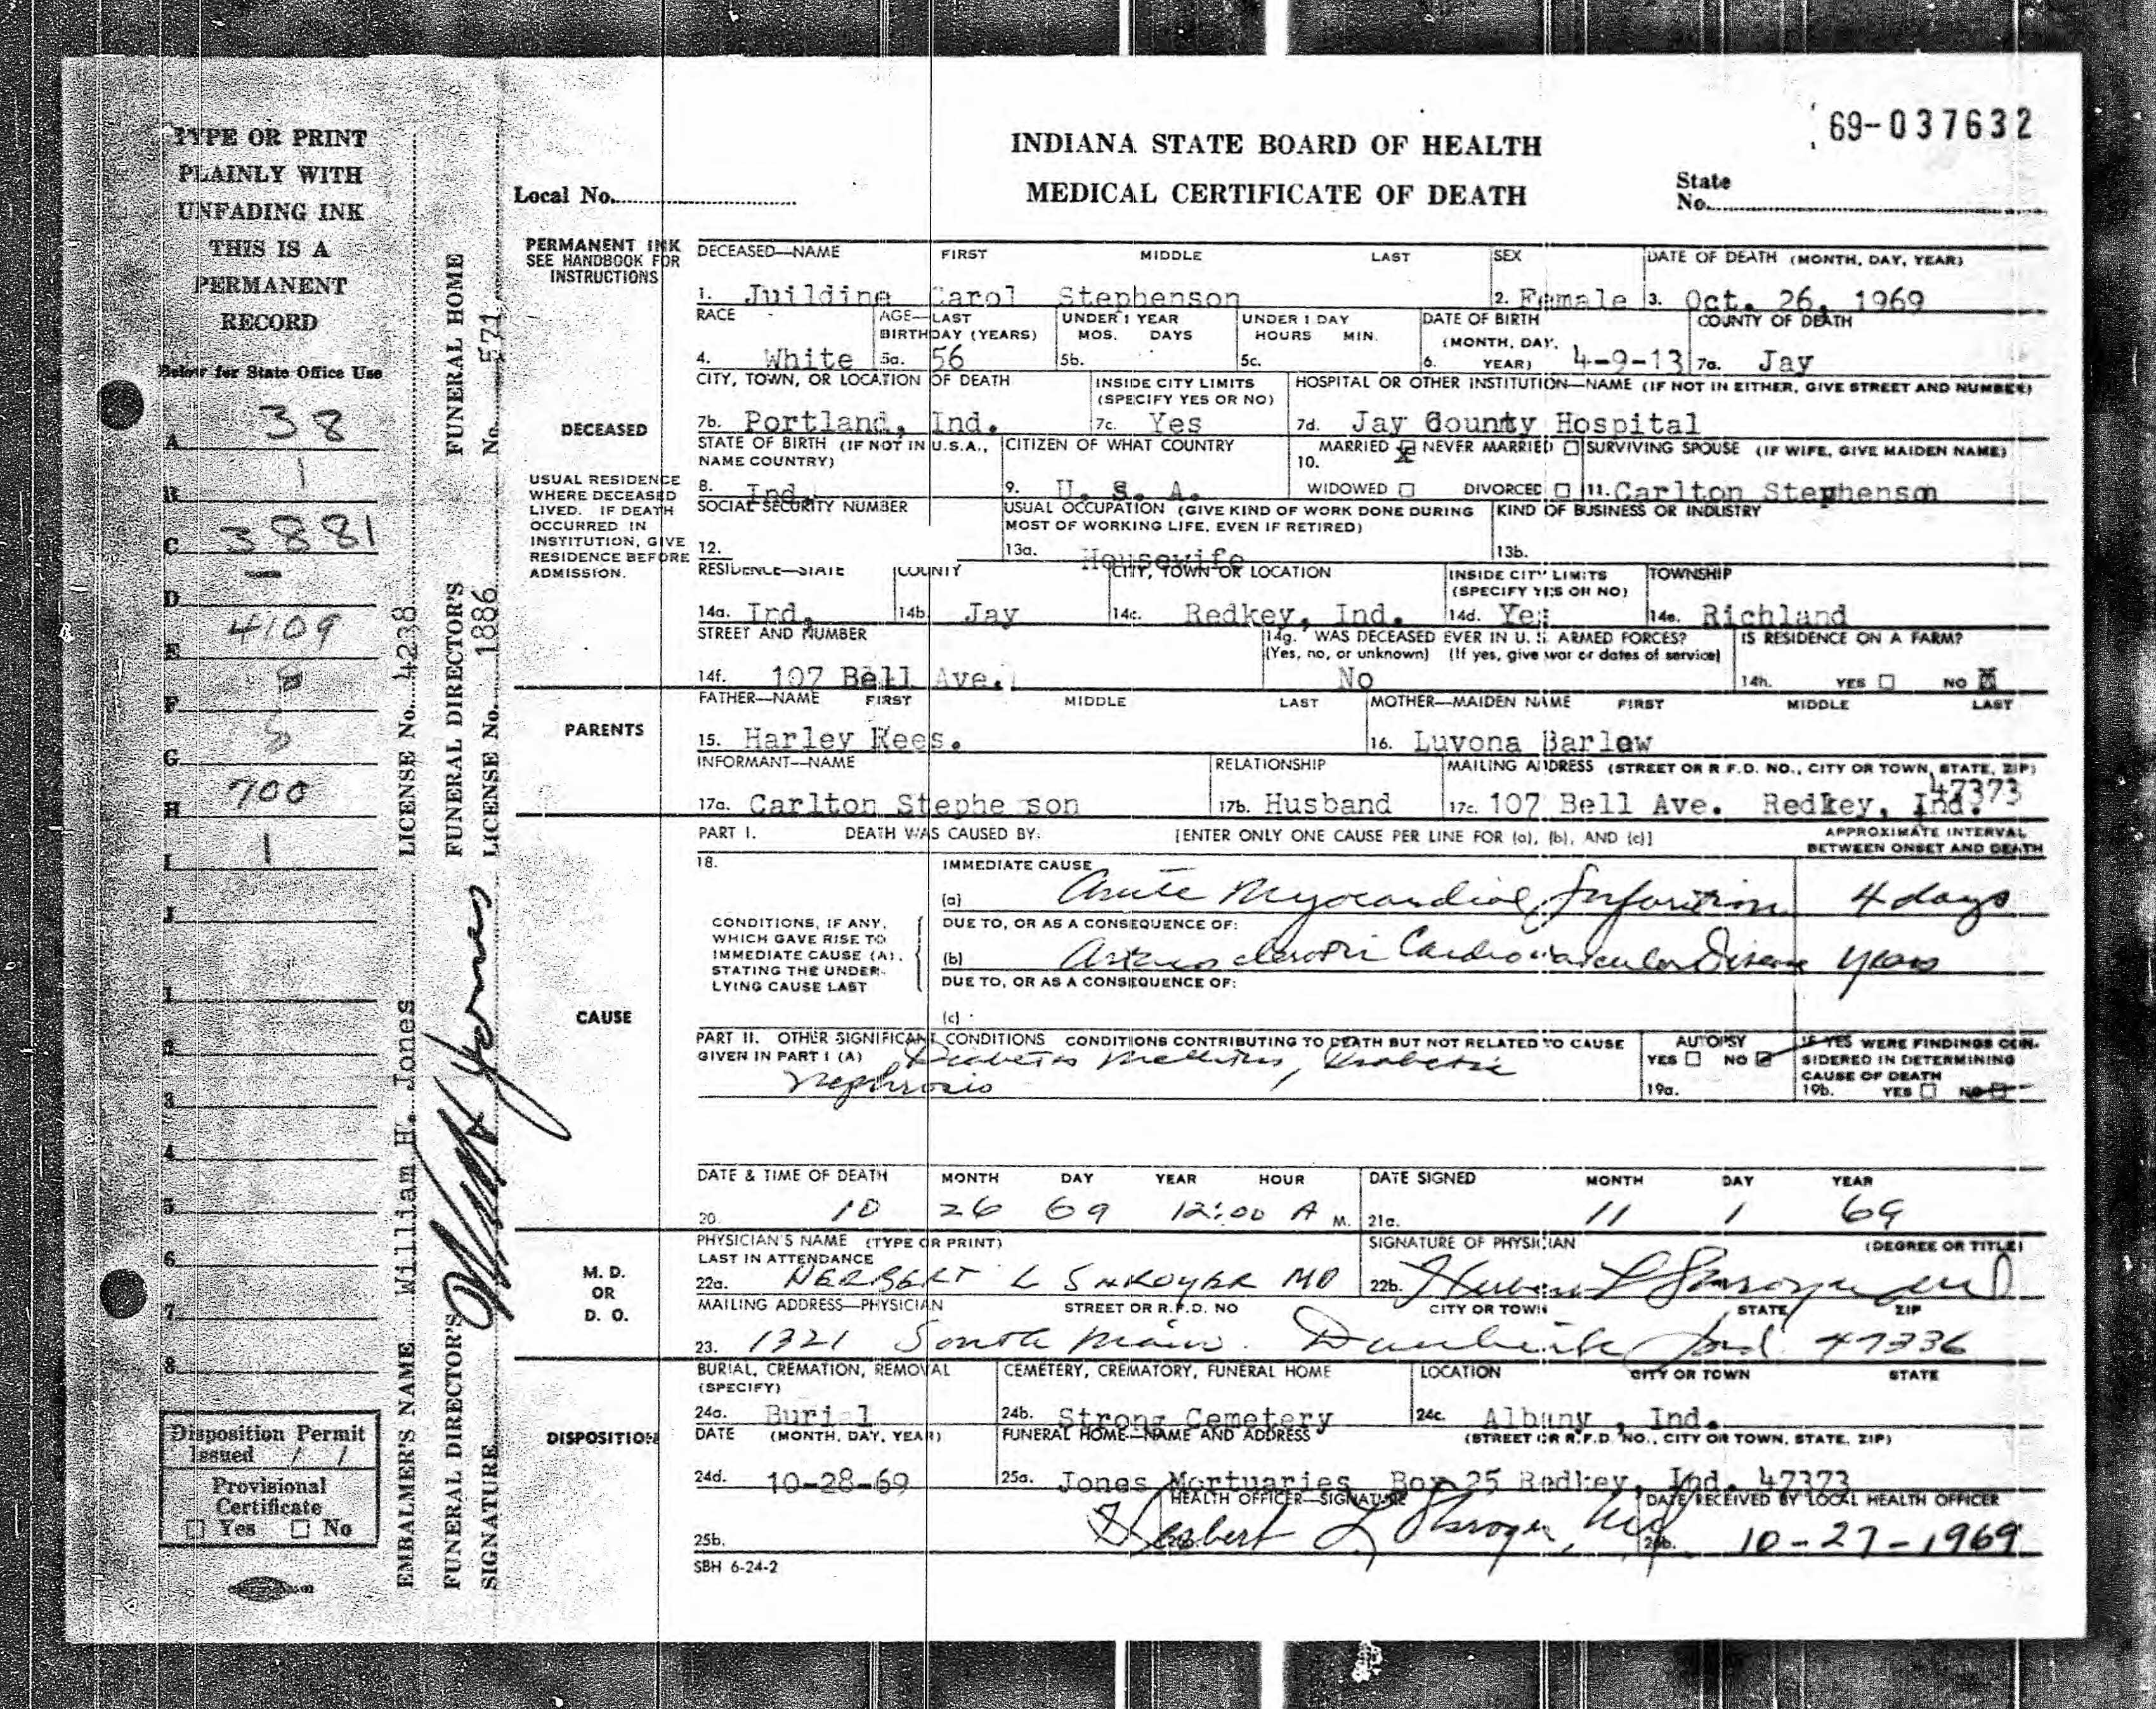 69-037632
INDIANA STATE BOARD OF HEALTH
MEDICAL CERTIFICATE OF DEATH
Local No.
State
No.
TYPE OR PRINT
PLAINLY WITH
UNFADING INK
THIS IS A
PERMANENT
RECORD
Below for State Office Use
A 38
B 1
C 3881
D —
E 4109
F
G
H 700
I 1
J
1
2
3
4
5
6
7
8
Disposition Permit
Issued / /
Provisional
Certificate
Yes No
EMBALMER'S NAME William H. Jones LICENSE No. 4238
FUNERAL DIRECTOR'S FUNERAL DIRECTOR'S FUNERAL HOME
SIGNATURE Wm H Jones LICENSE No. 1886 No. 571
PERMANENT INK
SEE HANDBOOK FOR
INSTRUCTIONS
DECEASED—NAME FIRST MIDDLE LAST SEX DATE OF DEATH (MONTH, DAY, YEAR)
1. Juildine Carol Stephenson 2. Female 3. Oct. 26, 1969
RACE AGE—LAST BIRTHDAY (YEARS) UNDER 1 YEAR MOS. DAYS UNDER 1 DAY HOURS MIN. DATE OF BIRTH (MONTH, DAY, YEAR) COUNTY OF DEATH
4. White 5a. 56 5b. 5c. 6. 4-9-13 7a. Jay
CITY, TOWN, OR LOCATION OF DEATH INSIDE CITY LIMITS (SPECIFY YES OR NO) HOSPITAL OR OTHER INSTITUTION—NAME (IF NOT IN EITHER, GIVE STREET AND NUMBER)
DECEASED
7b. Portland, Ind. 7c. Yes 7d. Jay County Hospital
STATE OF BIRTH (IF NOT IN U.S.A., NAME COUNTRY) CITIZEN OF WHAT COUNTRY 10. MARRIED X NEVER MARRIED WIDOWED DIVORCED SURVIVING SPOUSE (IF WIFE, GIVE MAIDEN NAME)
8. Ind. 9. U. S. A. 11. Carlton Stephenson
USUAL RESIDENCE
WHERE DECEASED
LIVED. IF DEATH
OCCURRED IN
INSTITUTION, GIVE
RESIDENCE BEFORE
ADMISSION.
SOCIAL SECURITY NUMBER USUAL OCCUPATION (GIVE KIND OF WORK DONE DURING MOST OF WORKING LIFE, EVEN IF RETIRED) KIND OF BUSINESS OR INDUSTRY
12. 13a. Housewife 13b.
RESIDENCE—STATE COUNTY CITY, TOWN OR LOCATION INSIDE CITY LIMITS (SPECIFY YES OR NO) TOWNSHIP
14a. Ind. 14b. Jay 14c. Redkey, Ind. 14d. Yes 14e. Richland
STREET AND NUMBER 14g. WAS DECEASED EVER IN U. S. ARMED FORCES? (Yes, no, or unknown) (If yes, give war or dates of service) IS RESIDENCE ON A FARM?
14f. 107 Bell Ave. No 14h. YES NO X
PARENTS
FATHER—NAME FIRST MIDDLE LAST MOTHER—MAIDEN NAME FIRST MIDDLE LAST
15. Harley Rees. 16. Luvona Barlow
INFORMANT—NAME RELATIONSHIP MAILING ADDRESS (STREET OR R.F.D. NO., CITY OR TOWN, STATE, ZIP)
17a. Carlton Stephe son 17b. Husband 17c. 107 Bell Ave. Redkey, Ind. 47373
PART I. DEATH WAS CAUSED BY: [ENTER ONLY ONE CAUSE PER LINE FOR (a), (b), AND (c)] APPROXIMATE INTERVAL BETWEEN ONSET AND DEATH
18. IMMEDIATE CAUSE
(a) Acute Myocardial Infarction 4 days
CONDITIONS, IF ANY,
WHICH GAVE RISE TO
IMMEDIATE CAUSE (A),
STATING THE UNDER-
LYING CAUSE LAST
DUE TO, OR AS A CONSEQUENCE OF:
(b) Arteriosclerotic Cardiovascular Disease years
DUE TO, OR AS A CONSEQUENCE OF:
(c)
CAUSE
PART II. OTHER SIGNIFICANT CONDITIONS CONDITIONS CONTRIBUTING TO DEATH BUT NOT RELATED TO CAUSE GIVEN IN PART I (A)
Diabetes Mellitus, Diabetic
Nephrosis
AUTOPSY YES NO 19a.
IF YES WERE FINDINGS CONSIDERED IN DETERMINING CAUSE OF DEATH 19b. YES NO
DATE & TIME OF DEATH MONTH DAY YEAR HOUR DATE SIGNED MONTH DAY YEAR
20. 10 26 69 12:00 A M. 21a. 11 1 69
M. D.
OR
D. O.
PHYSICIAN'S NAME (TYPE OR PRINT) LAST IN ATTENDANCE SIGNATURE OF PHYSICIAN (DEGREE OR TITLE)
22a. HERBERT L SHROYER MD 22b. Herbert L Shroyer MD
MAILING ADDRESS—PHYSICIAN STREET OR R.F.D. NO CITY OR TOWN STATE ZIP
23. 1321 South Main. Dunkirk Ind. 47336
DISPOSITION
BURIAL, CREMATION, REMOVAL (SPECIFY) CEMETERY, CREMATORY, FUNERAL HOME LOCATION CITY OR TOWN STATE
24a. Burial 24b. Strong Cemetery 24c. Albany, Ind.
DATE (MONTH, DAY, YEAR) FUNERAL HOME—NAME AND ADDRESS (STREET OR R.F.D. NO., CITY OR TOWN, STATE, ZIP)
24d. 10-28-69 25a. Jones Mortuaries Box 25 Redkey, Ind. 47373
HEALTH OFFICER—SIGNATURE DATE RECEIVED BY LOCAL HEALTH OFFICER
25b. Herbert L Shroyer, MD 26b. 10-27-1969
SBH 6-24-2